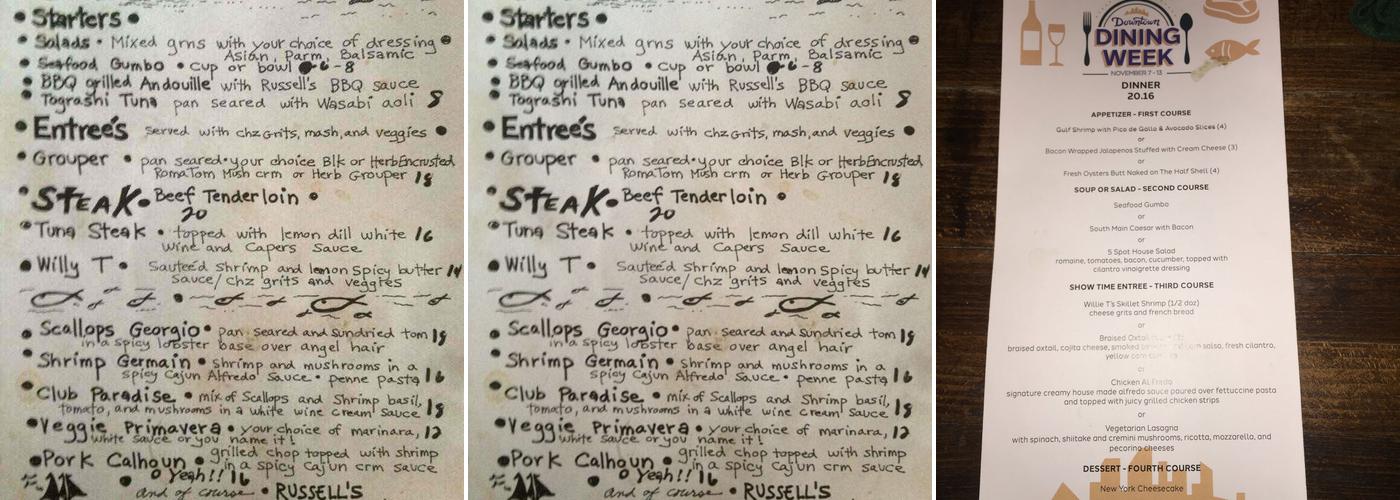 • Starters •
• Salads • Mixed grns with your choice of dressing •
Asian, Parm, Balsamic
• Seafood Gumbo • cup or bowl 6-8
• BBQ grilled Andouille with Russell's BBQ sauce
• Tograshi Tuna pan seared with Wasabi aoli 8
• Entreé's served with chz Grits, mash, and veggies •
• Grouper • pan seared • your choice Blk or Herb Encrusted
Roma Tom Mush crm or Herb Grouper 18
• STEAK • Beef Tenderloin •
20
• Tuna Steak • topped with lemon dill white 16
wine and Capers Sauce
• Willy T • Sauteéd Shrimp and lemon Spicy butter 14
Sauce/chz grits and veggies
• Scallops Georgio • pan seared and Sundried tom 18
in a spicy lobster base over angel hair
• Shrimp Germain • shrimp and mushrooms in a
spicy Cajun Alfredo Sauce • penne pasta 16
• Club Paradise • mix of Scallops and Shrimp basil,
tomato, and mushrooms in a white wine cream Sauce 18
• Veggie Primavera • your choice of marinara, 12
white sauce or you name it!
• Pork Calhoun • grilled chop topped with shrimp
in a spicy Cajun crm sauce
• Yeah!! 16
and of course • RUSSELL'S
• Starters •
• Salads • Mixed grns with your choice of dressing •
Asian, Parm, Balsamic
• Seafood Gumbo • cup or bowl 6-8
• BBQ grilled Andouille with Russell's BBQ sauce
• Tograshi Tuna pan seared with Wasabi aoli 8
• Entreé's served with chz Grits, mash, and veggies •
• Grouper • pan seared • your choice Blk or Herb Encrusted
Roma Tom Mush crm or Herb Grouper 18
• STEAK • Beef Tenderloin •
20
• Tuna Steak • topped with lemon dill white 16
wine and Capers Sauce
• Willy T • Sauteéd Shrimp and lemon Spicy butter 14
Sauce/chz grits and veggies
• Scallops Georgio • pan seared and Sundried tom 18
in a spicy lobster base over angel hair
• Shrimp Germain • shrimp and mushrooms in a
spicy Cajun Alfredo Sauce • penne pasta 16
• Club Paradise • mix of Scallops and Shrimp basil,
tomato, and mushrooms in a white wine cream Sauce 18
• Veggie Primavera • your choice of marinara, 12
white sauce or you name it!
• Pork Calhoun • grilled chop topped with shrimp
in a spicy Cajun crm sauce
• Yeah!! 16
and of course • RUSSELL'S
Downtown
DINING
WEEK
NOVEMBER 7 - 13
DINNER
20.16
APPETIZER - FIRST COURSE
Gulf Shrimp with Pico de Gallo & Avocado Slices (4)
or
Bacon Wrapped Jalapenos Stuffed with Cream Cheese (3)
or
Fresh Oysters Butt Naked on The Half Shell (4)
SOUP OR SALAD - SECOND COURSE
Seafood Gumbo
or
South Main Caesar with Bacon
or
5 Spot House Salad
romaine, tomatoes, bacon, cucumber, topped with
cilantro vinaigrette dressing
SHOW TIME ENTREE - THIRD COURSE
Willie T's Skillet Shrimp (1/2 doz)
cheese grits and french bread
or
Braised
braised oxtail, cojita cheese, smoked salsa, fresh cilantro,
yellow corn
or
Chicken Al Fredo
signature creamy house made alfredo sauce poured over fettuccine pasta
and topped with juicy grilled chicken strips
or
Vegetarian Lasagna
with spinach, shiitake and cremini mushrooms, ricotta, mozzarella, and
pecorino cheeses
DESSERT - FOURTH COURSE
New York Cheesecake